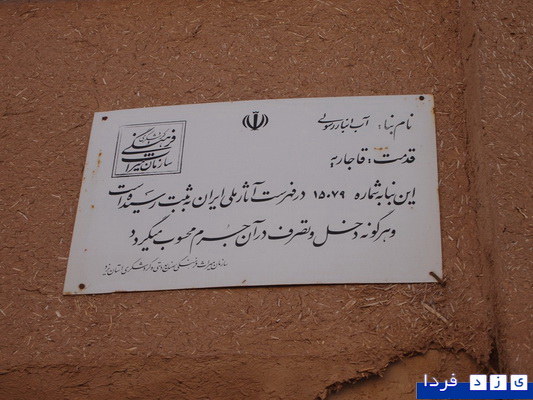 نام بنا: آب انبار رسولی
قدمت: قاجاریه
این بنا به شماره ۱۵۰۷۹ در فهرست آثار ملی ایران به ثبت رسیده است
و هرگونه دخل و تصرف در آن جرم محسوب میگردد
سازمان میراث فرهنگی، صنایع دستی و گردشگری استان یزد
سازمان میراث فرهنگی
یزد فردا